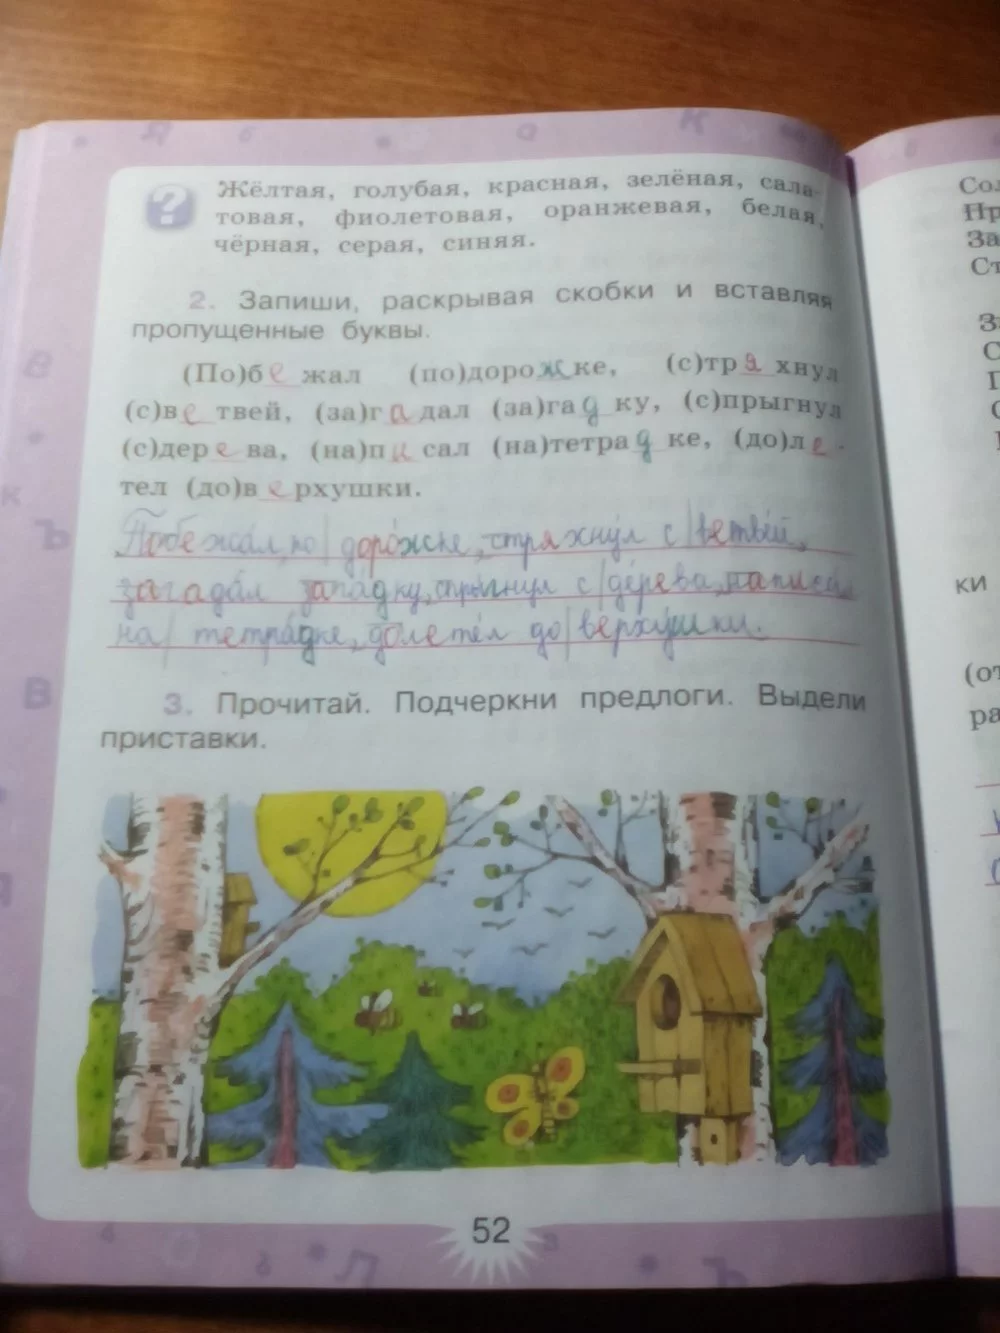 Жёлтая, голубая, красная, зелёная, сала-
товая, фиолетовая, оранжевая, белая,
чёрная, серая, синяя.
2. Запиши, раскрывая скобки и вставляя
пропущенные буквы.
(По)бежал (по)дорожке, (с)тряхнул
(с)ветвей, (за)гадал (за)гадку, (с)прыгнул
(с)дерева, (на)писал (на)тетрадке, (до)ле-
тел (до)верхушки.
Побежал, по| дорожке, стряхнул с| ветвей,
загадал загадку, спрыгнул с| дерева, написал
на| тетрадке, долетел до| верхушки.
3. Прочитай. Подчеркни предлоги. Выдели
приставки.
52
Сол
Пр
За
Ст
За
С
П
ки
(от
ра